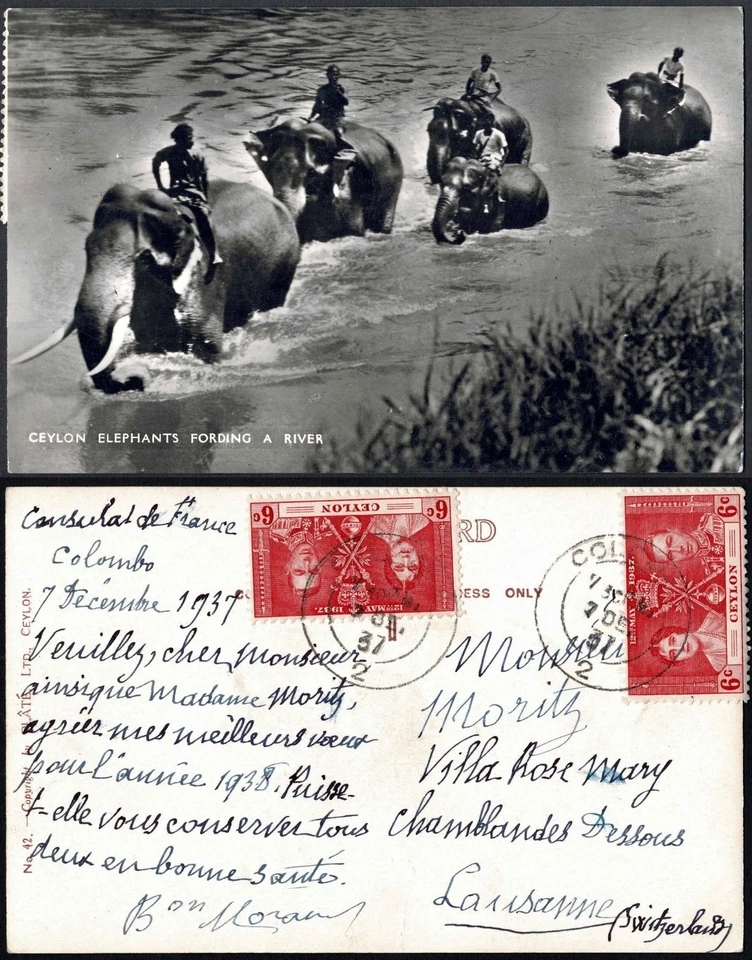 CEYLON ELEPHANTS FORDING A RIVER
Consulat de France
Colombo
7 Décembre 1937
Veuillez, cher monsieur
ainsi que Madame Moritz,
agréer mes meilleurs vœux
pour l'année 1938. Puisse-
t-elle vous conserver tous
deux en bonne santé.
Bon
No. 42. — Copyright by PLÂTÉ LTD. CEYLON.
6c CEYLON 6c
12TH MAY 1937.
7 DE
37
2
RD
ESS ONLY
COL
7 DE
37
2
6c CEYLON 6c
12TH MAY 1937.
Monsieur
Moritz
Villa Rose Mary
Chamblandes Dessous
Lausanne
(Switzerland)